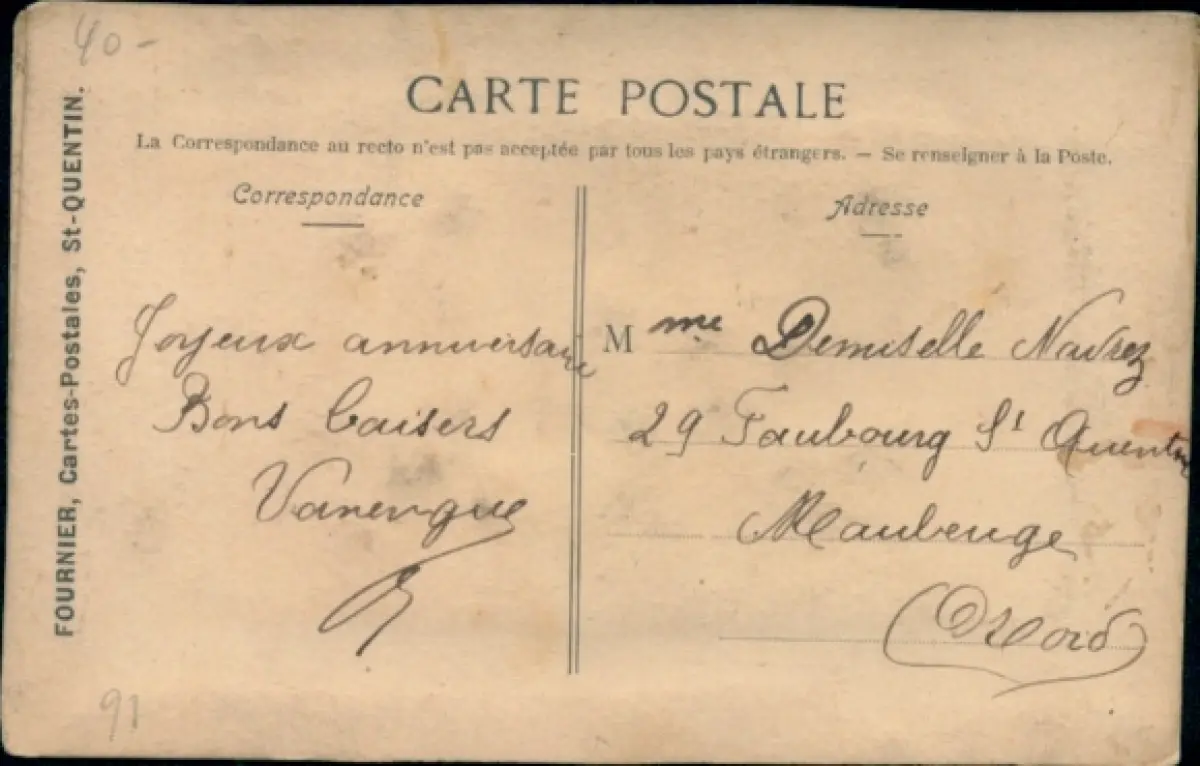 40-
CARTE POSTALE
La Correspondance au recto n'est pas acceptée par tous les pays étrangers. — Se renseigner à la Poste.
FOURNIER, Cartes-Postales, St-QUENTIN.
Correspondance
Joyeux anniversaire
Bons baisers
91
Adresse
M me Demiselle Navrez
29 Faubourg St Quentin
Maubeuge
(Nord)